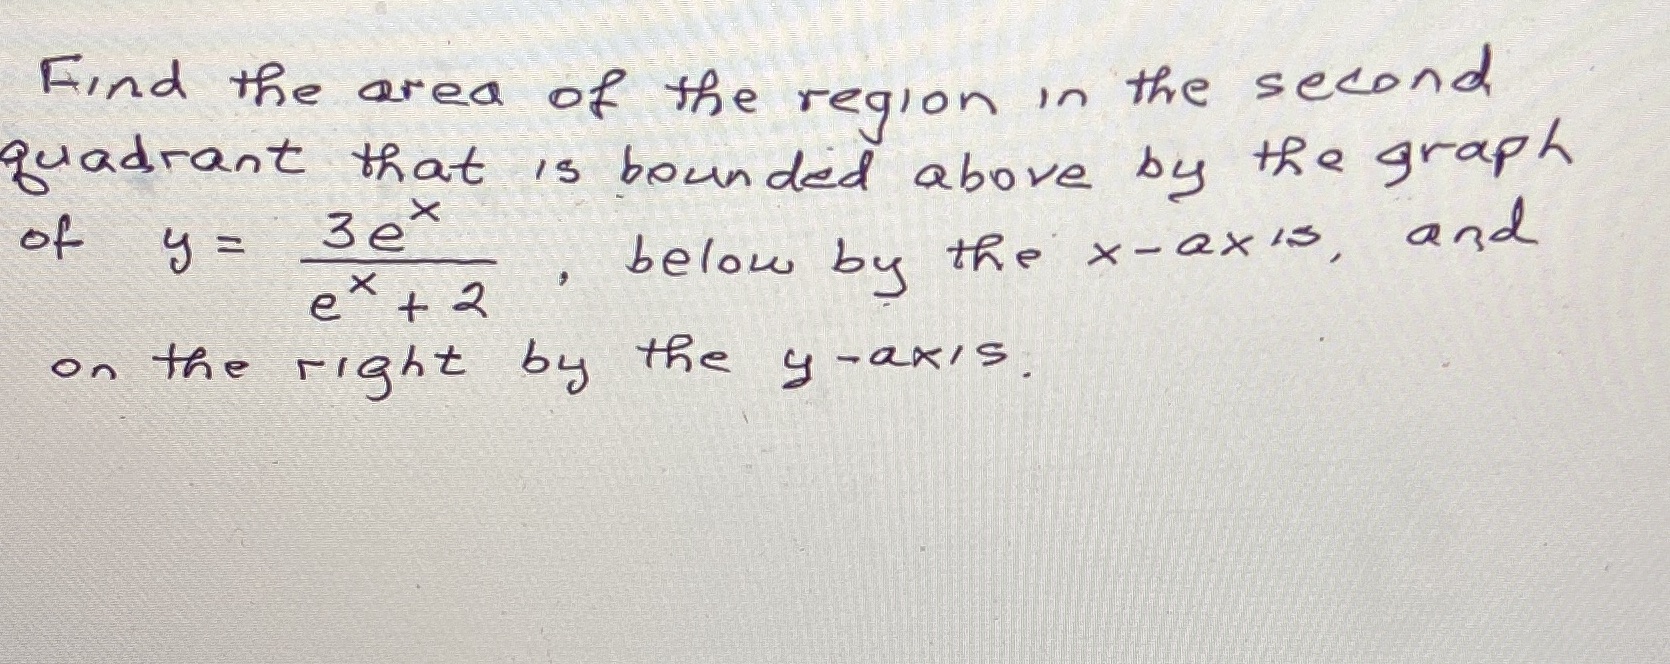 Find the area of the region in the second
quadrant that is bounded above by the graph
of y = 3e^x / (e^x + 2), below by the x-axis, and
on the right by the y-axis.